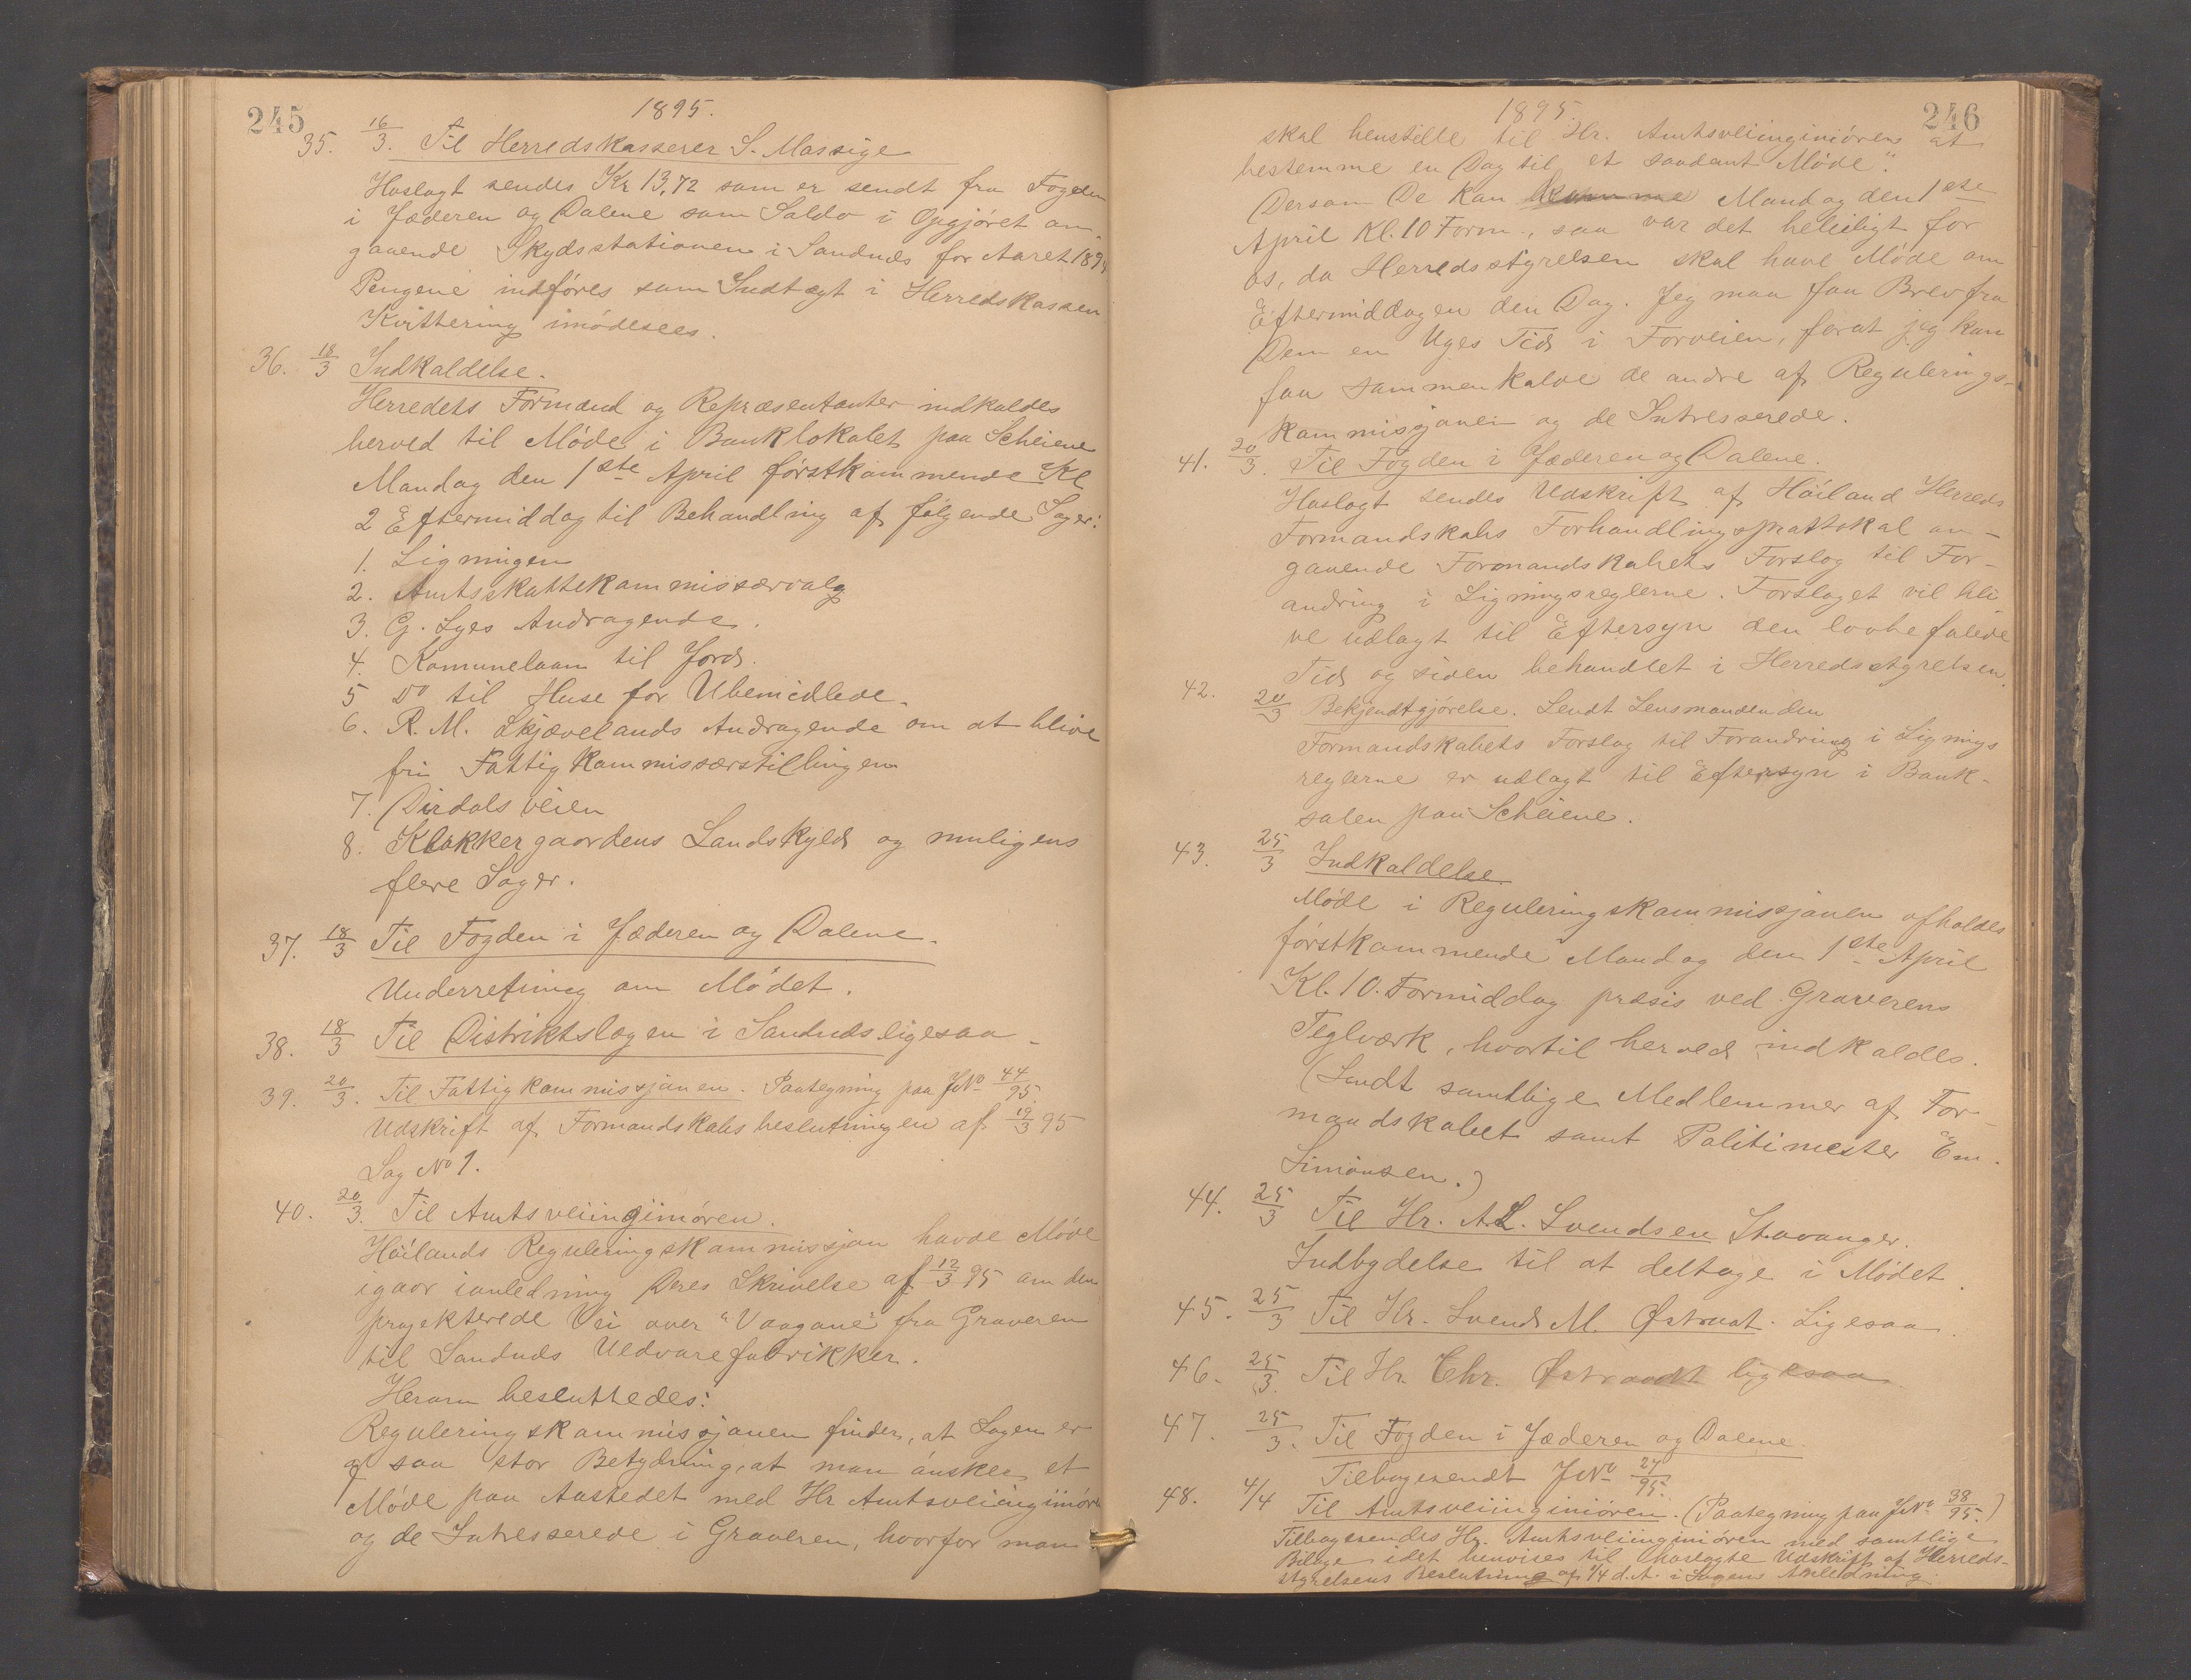 245
1895.
35. 16/3. Til Herredskasserer S. Massige
Hoslagt sendes Kr 13,72 som er sendt fra Fogden
i Jæderen og Dalene som Saldo i Opgjöret an-
gaaende Skydsstationen i Sandnæs for Aaret 1894
Pengene indföres som Indtægt i Herredskassen
Kvittering imödesees.
36. 18/3 Indkaldelse.
Herredets Formænd og Repræsentanter indkaldes
herved til Möde i Banklokalet paa Scheiene
Mandag den 1ste April förstkommende Kl
2 Eftermiddag til Behandling af fölgende Sager:
1. Ligningen
2. Amtsskattekommissærvalg
3. G. Lyes Andragende.
4. Komunelaan til Jord.
5 Do til Huse for Ubemidlede.
6. R. M. Skjævelands Andragende om at blive
fri Fattigkommissærstillingen
7. Dirdalsveien
8. Klokkergaardens Landskyld og muligens
flere Sager.
37. 18/3 Til Fogden i Jæderen og Dalene.
Underretning om Mödet.
38. 18/3 Til Distriktslægen i Sandnæs ligesaa.
39. 20/3. Til Fattigkommissjonen. Paategning paa JNo 44/95.
Udskrift af Formandskabsbeslutningen af 19/3 95
Sag No 1.
40. 20/3. Til Amtsveiingeniören.
Höilands Reguleringskommissjon havde Möde
igaar ianledning Deres Skrivelse af 12/3 95 om den
projekterede Vei over "Vaagane" fra Graveren
til Sandnæs Uldvarefabrikker.
Herom besluttedes:
Reguleringskommissjonen finder, at Sagen er
af saa stor Betydning, at man önsker et
Möde paa Aastedet med Hr Amtsveiingeniören
og de Intresserede i Graveren, hvorfor man
246
1895.
skal henstille til Hr. Amtsveiingeniören at
bestemme en Dag til et saadant Möde".
Dersom De kan komme Mandag den 1ste
April Kl. 10 Form., saa var det beleiligt for
os, da Herredsstyrelsen skal have Möde om
Eftermiddagen den Dag. Jeg maa faa Brev fra
Dem en Uges Tid i Forveien, forat jeg kan
faa sammenkalde de andre af Regulerings-
kommissjonen og de Intresserede.
41. 20/3. Til Fogden i Jæderen og Dalene.
Hoslagt sendes Udskrift af Höiland Herreds
Formandskabs Forhandlingsprottokol an-
gaaende Formandskabets Forslag til For-
andring i Ligningsreglerne. Forslaget vil bli-
ve udlagt til Eftersyn den lovbefalede
Tid og siden behandlet i Herredsstyrelsen.
42. 20/3 Bekjendtgjörelse. Sendt Lensmanden den
Formandskabets Forslag til Forandring i Lignings
reglerne er udlagt til Eftersyn i Bank-
salen paa Scheiene.
43. 25/3 Indkaldelse.
Möde i Reguleringskommissjonen afholdes
förstkommende Mandag den 1ste April
Kl. 10. Formiddag præsis ved Graverens
Teglværk, hvortil herved indkaldes.
(Sendt samtlige Medlemmer af For-
mandskabet samt Politimester Em.
Simonsen.)
44. 25/3 Til Hr. A.L. Svendsen Stavanger.
Indbydelse til at deltage i Mödet.
45. 25/3 Til Hr. Svend M. Østraat. Ligesaa.
46. 25/3. Til Hr. Chr. Østraadt ligesaa
47. 25/3. Til Fogden i Jæderen og Dalene.
Tilbagesendt JNo 27/95.
48. 4/4 Til Amtsveiingeniören. (Paategning paa JNo 38/95.)
Tilbagesendes Hr. Amtsveiingeniören med samtlige
Bilage idet henvises til hoslagte Udskrift af Herreds-
styrelsens Beslutning af 1/4 d.A. i Sagens Anledning.